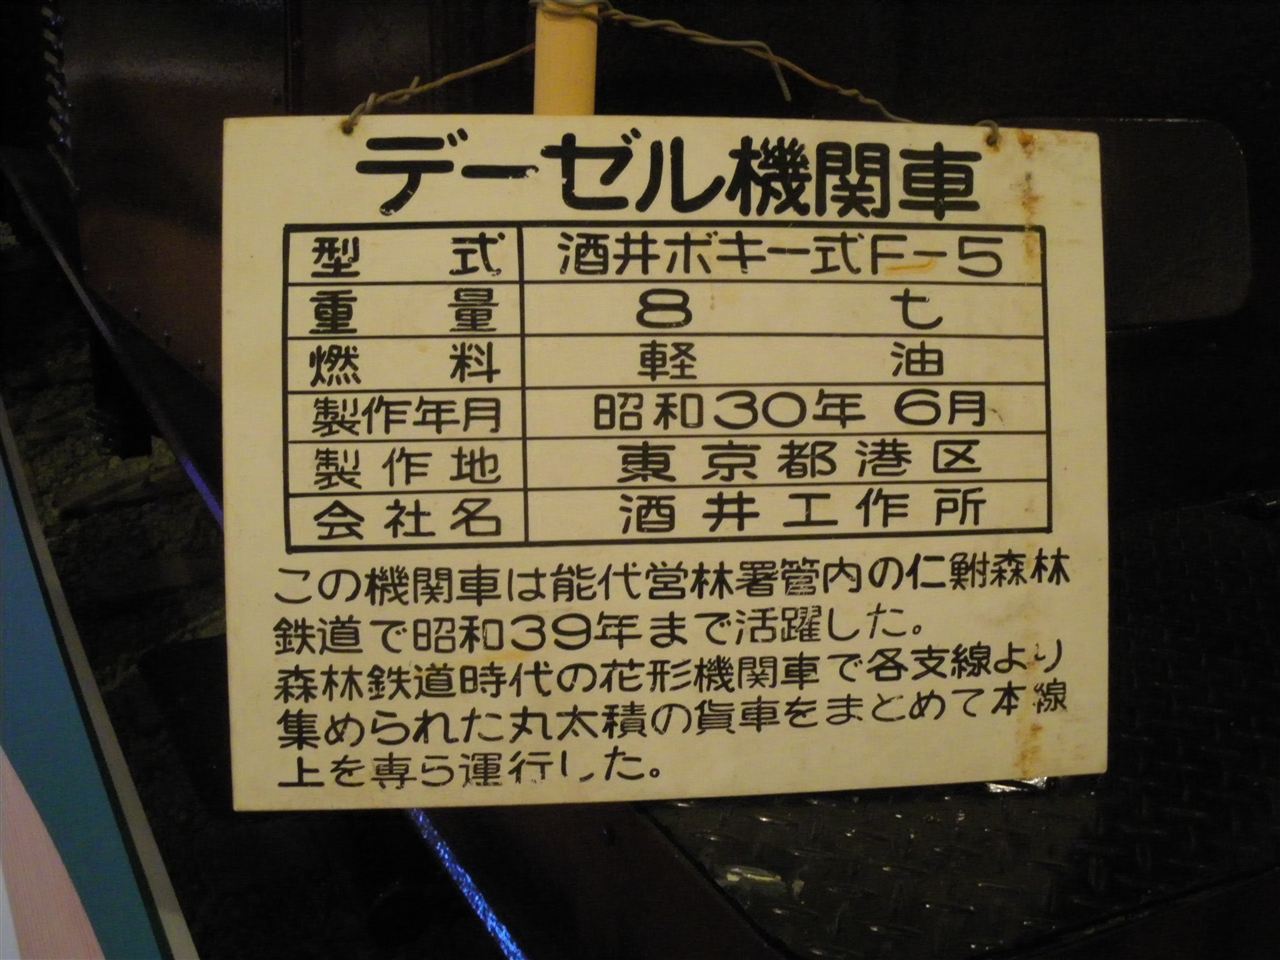 デーゼル機関車
型式 酒井ボキー式F-5
重量 8 七
燃料 軽油
製作年月 昭和30年 6月
製作地 東京都港区
会社名 酒井工作所
この機関車は能代営林署管内の仁鮒森林
鉄道で昭和39年まで活躍した。
森林鉄道時代の花形機関車で各支線より
集められた丸太積の貨車をまとめて本線
上を専ら運行した。